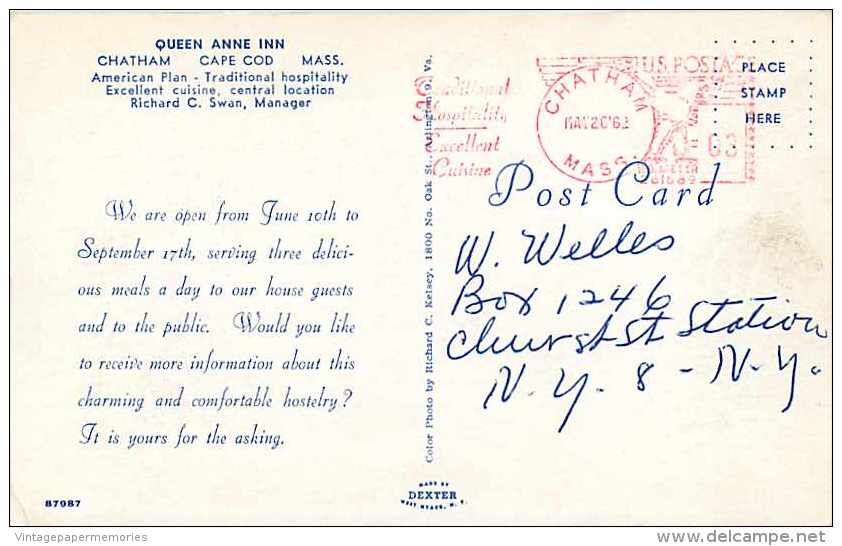 QUEEN ANNE INN
CHATHAM CAPE COD MASS.
American Plan - Traditional hospitality
Excellent cuisine, central location
Richard C. Swan, Manager
We are open from June 10th to
September 17th, serving three delici-
ous meals a day to our house guests
and to the public. Would you like
to receive more information about this
charming and comfortable hostelry?
It is yours for the asking.
87987
Color Photo by Richard C. Kelsey, 1800 No. Oak St., Arlington 9, Va.
MADE BY
DEXTER
WEST NYACK, N. Y.
Traditional
Hospitality
Excellent
Cuisine
CHATHAM
MAY 20 '62
MASS.
U.S. POSTAGE
03
PLACE
STAMP
HERE
Post Card
W. Welles
Box 1246
Church St Station
N.Y. 8 - N.Y.
Vintagepapermemories
delcampe.net